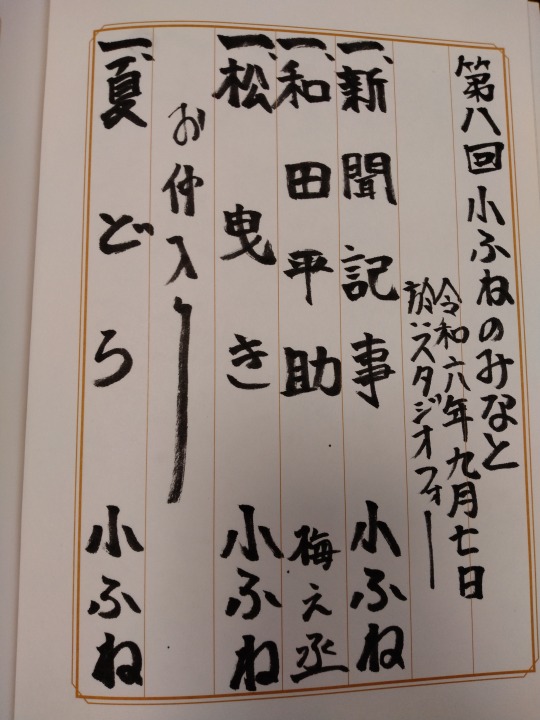 第八回 小ふねのみなと
令和六年九月七日
於:スタジオフォー
一、新聞記事 小ふね
一、和田平助 梅之丞
一、松曳き 小ふね
お仲入り
一、夏どろ 小ふね